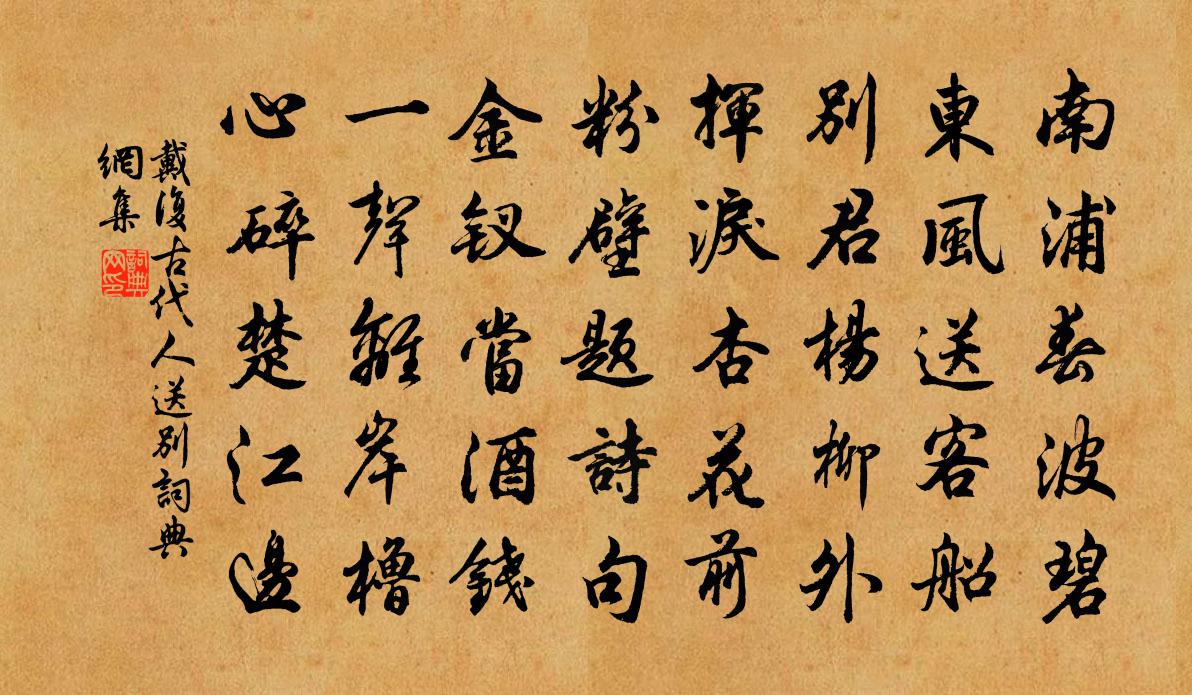 南浦春波碧
東風送客船
別君楊柳外
揮淚杏花前
粉壁題詩句
金釵當酒錢
一聲離岸櫓
心碎楚江邊
戴復古代人送別詞典
網集
詞典
网印